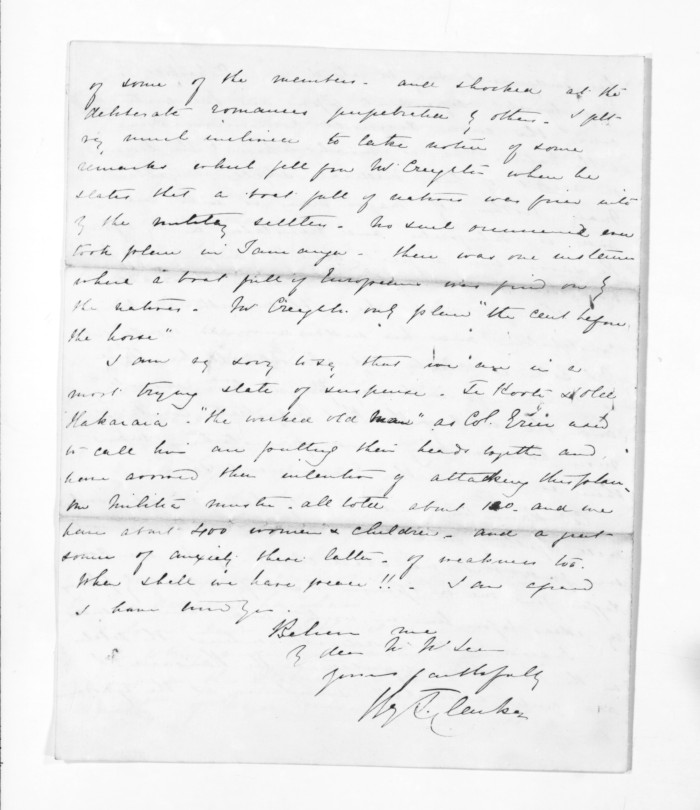 of some of the members - and shocked at the
deliberate romances perpetrated by others. I felt
very much inclined to take notice of some
remarks which fell from Mr Creighton when he
states that a boat full of natives was fired into
by the military settlers. No such occurrence ever
took place in Tauranga - there was one instance
where a boat full of Europeans was fired on by
the natives. Mr Creighton only places "the cart before
the horse"
I am very sorry to say that we are in a
most trying state of suspense. Te Kooti & old
Hakaraia - "the wicked old man" as Col. Greer used
to call him are putting their heads together and
have avowed their intention of attacking this place
our Militia muster - all told about 100 - and we
have about 400 women & children - and a great
source of anxiety these latter - of weakness too.
When shall we have peace!! - I am afraid
I have tired you.
Believe me
My dear Mr McLean
Yours faithfully
Hy T. Clarke